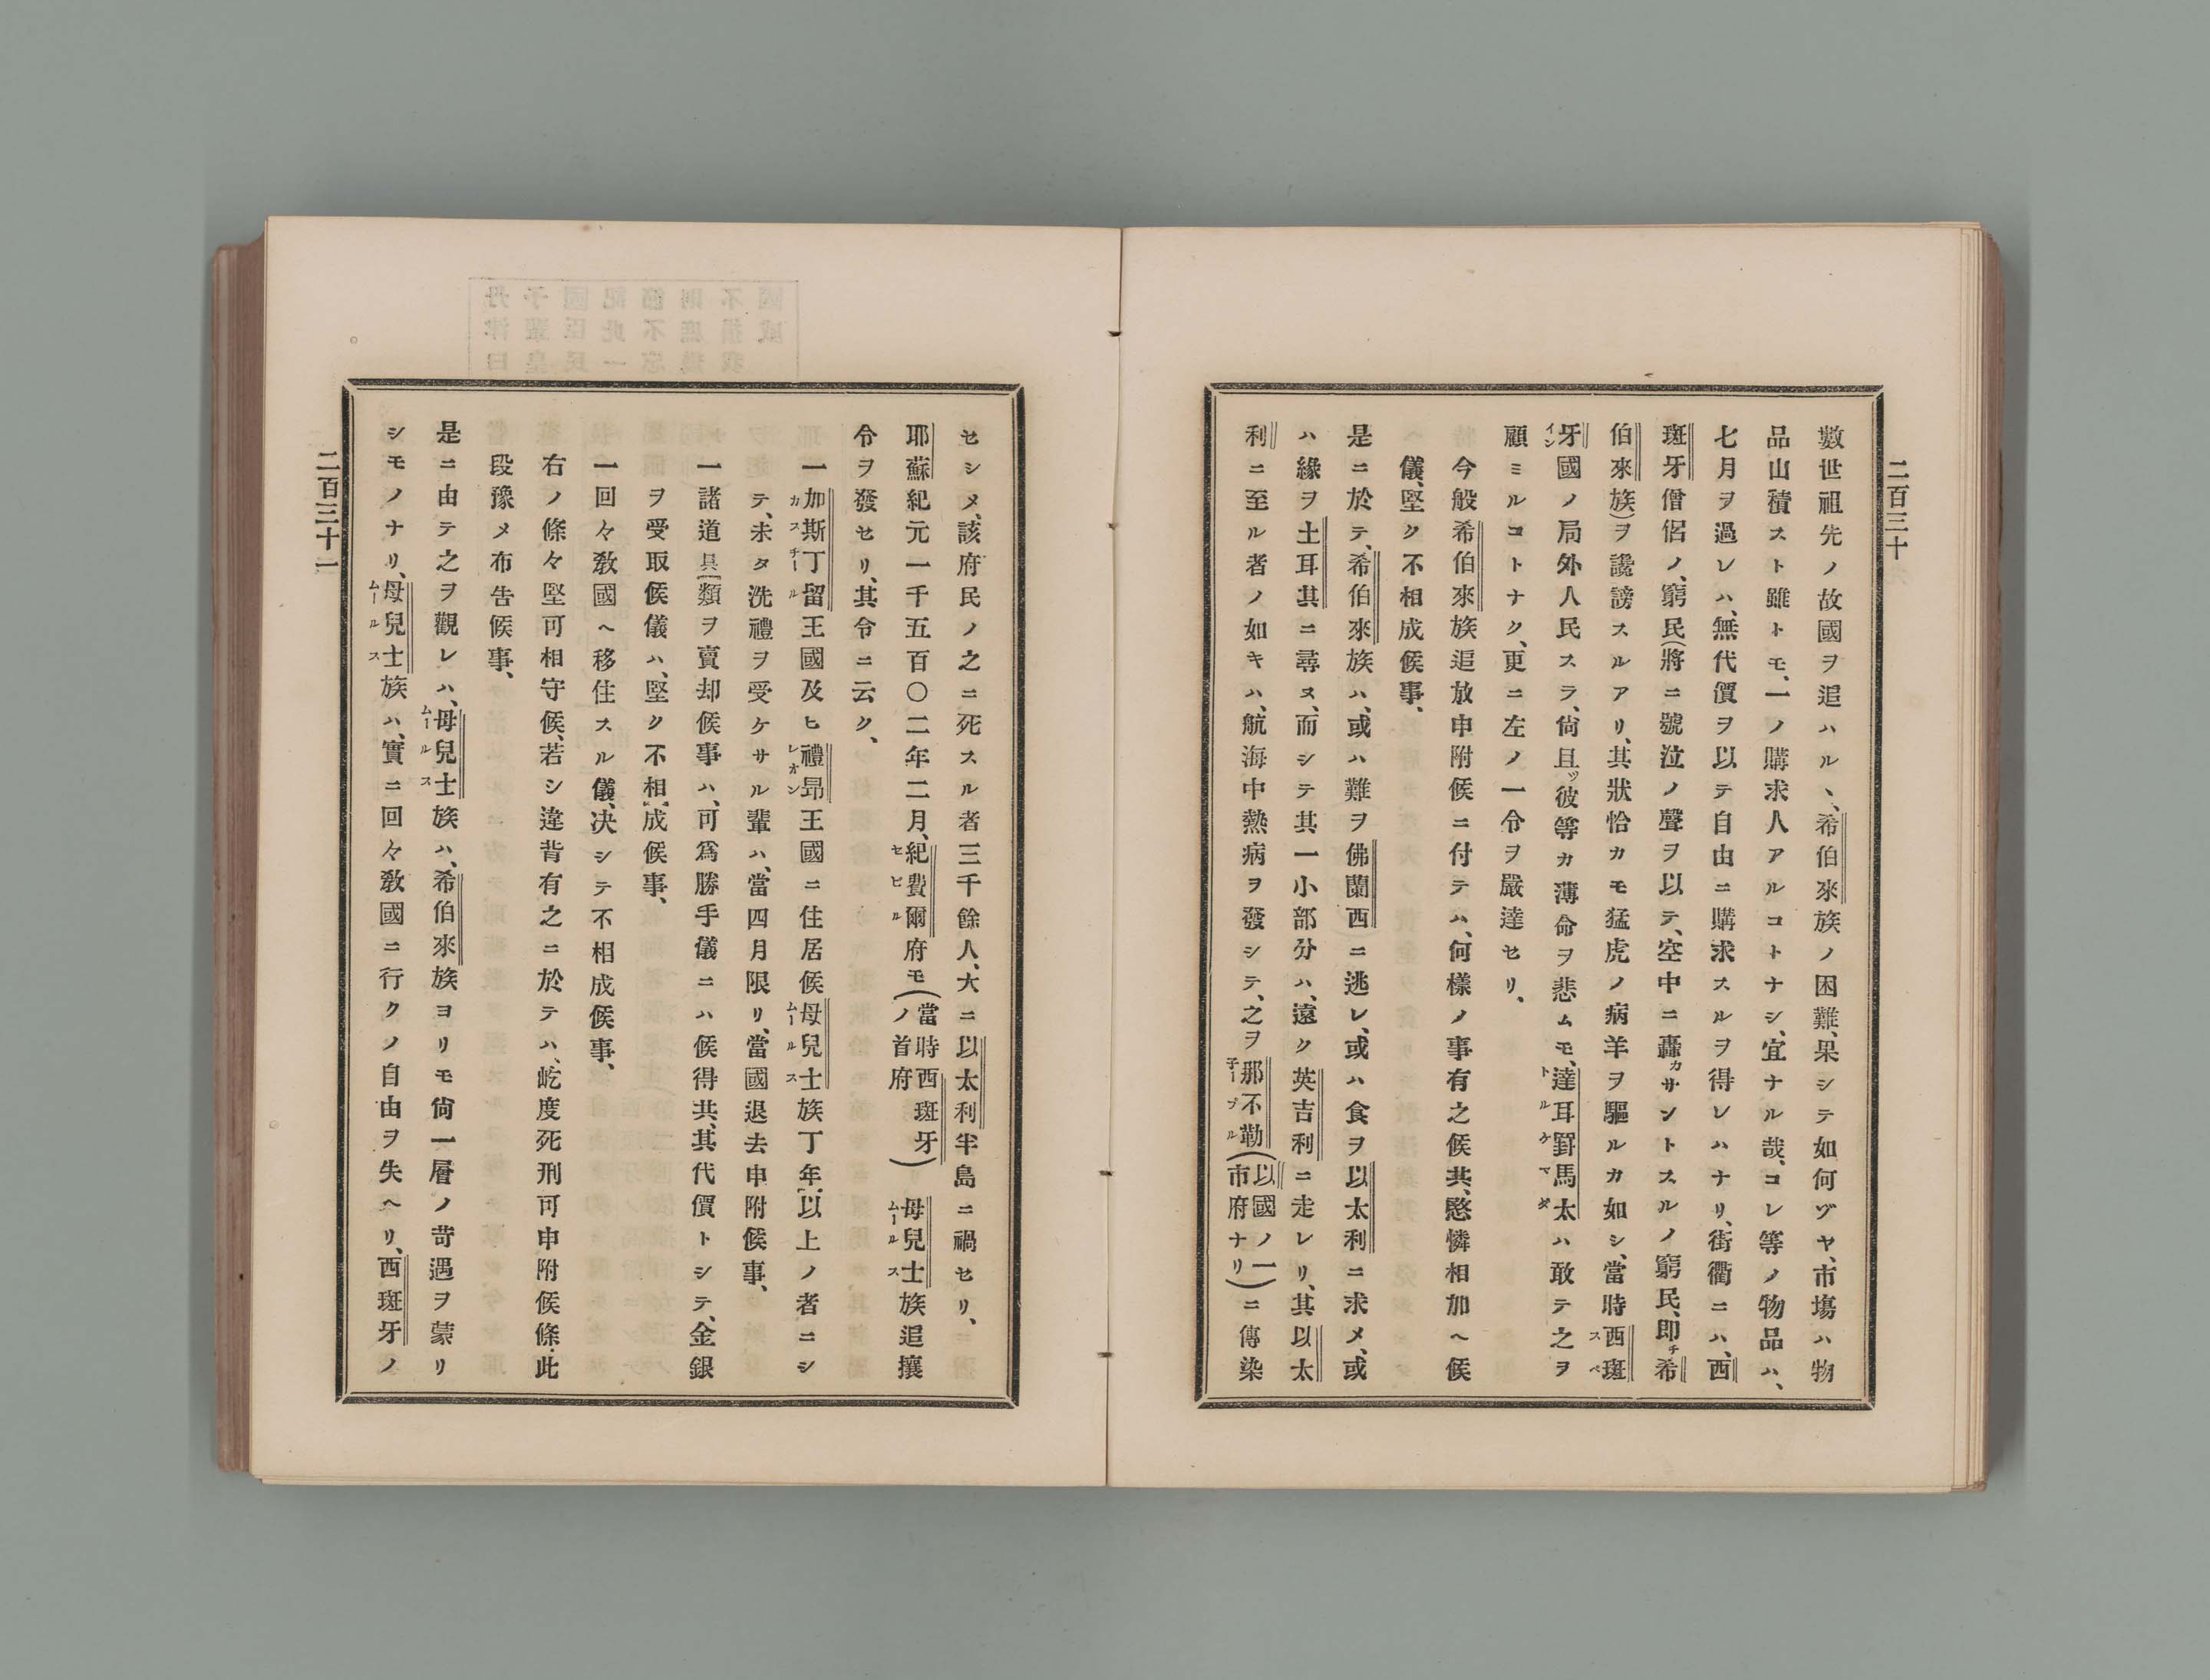 二百三十
數世祖先ノ故國ヲ追ハルヽ、希伯來族ノ困難、果シテ如何ヅヤ、市塲ハ物
品山積スト雖トモ、一ノ購求人アルコトナシ、宜ナル哉、コレ等ノ物品ハ、
七月ヲ過レハ、無代價ヲ以テ自由ニ購求スルヲ得レハナリ、街衢ニハ、西
斑牙僧侶ノ、窮民(將ニ號泣ノ聲ヲ以テ、空中ニ轟カサントスルノ窮民、即チ希
伯來族)ヲ讒謗スルアリ、其狀恰カモ猛虎ノ病羊ヲ驅ルカ如シ、當時西斑スペ
牙イン國ノ局外人民スラ、尙且ッ彼等カ薄命ヲ悲ムモ、達耳罫馬太トルケマダハ敢テ之ヲ
顧ミルコトナク、更ニ左ノ一令ヲ嚴達セリ、
今般希伯來族追放申附候ニ付テハ、何樣ノ事有之候共、愍憐相加ヘ候
儀、堅ク不相成候事、
是ニ於テ、希伯來族ハ、或ハ難ヲ佛蘭西ニ逃レ、或ハ食ヲ以太利ニ求メ、或
ハ緣ヲ土耳其ニ尋ヌ、而シテ其一小部分ハ、遠ク英吉利ニ走レリ、其以太
利ニ至ル者ノ如キハ、航海中熱病ヲ發シテ、之ヲ那不勒子ープル(以國ノ一市府ナリ)ニ傳染
セシメ、該府民ノ之ニ死スル者三千餘人、大ニ以太利半島ニ禍セリ、
耶蘇紀元一千五百〇二年二月、紀費爾セヒル府モ(當時西斑牙ノ首府)母兒士ムールス族追攘
令ヲ發セリ、其令ニ云ク、
一加斯丁留カスチール王國及ヒ禮昻レオン王國ニ住居候母兒士ムールス族丁年以上ノ者ニシ
テ、未タ洗禮ヲ受ケサル輩ハ、當四月限リ、當國退去申附候事、
一諸道具類ヲ賣却候事ハ、可爲勝手儀ニハ候得共、其代價トシテ、金銀
ヲ受取候儀ハ、堅ク不相成候事、
一回々敎國ヘ移住スル儀、决シテ不相成候事、
右ノ條々堅可相守候、若シ違背有之ニ於テハ、屹度死刑可申附候條、此
段豫メ布吿候事、
是ニ由テ之ヲ觀レハ、母兒士ムールス族ハ、希伯來族ヨリモ尙一層ノ苛遇ヲ蒙リ
シモノナリ、母兒士ムールス族ハ、實ニ回々敎國ニ行クノ自由ヲ失ヘリ、西斑牙ノ
二百三十一